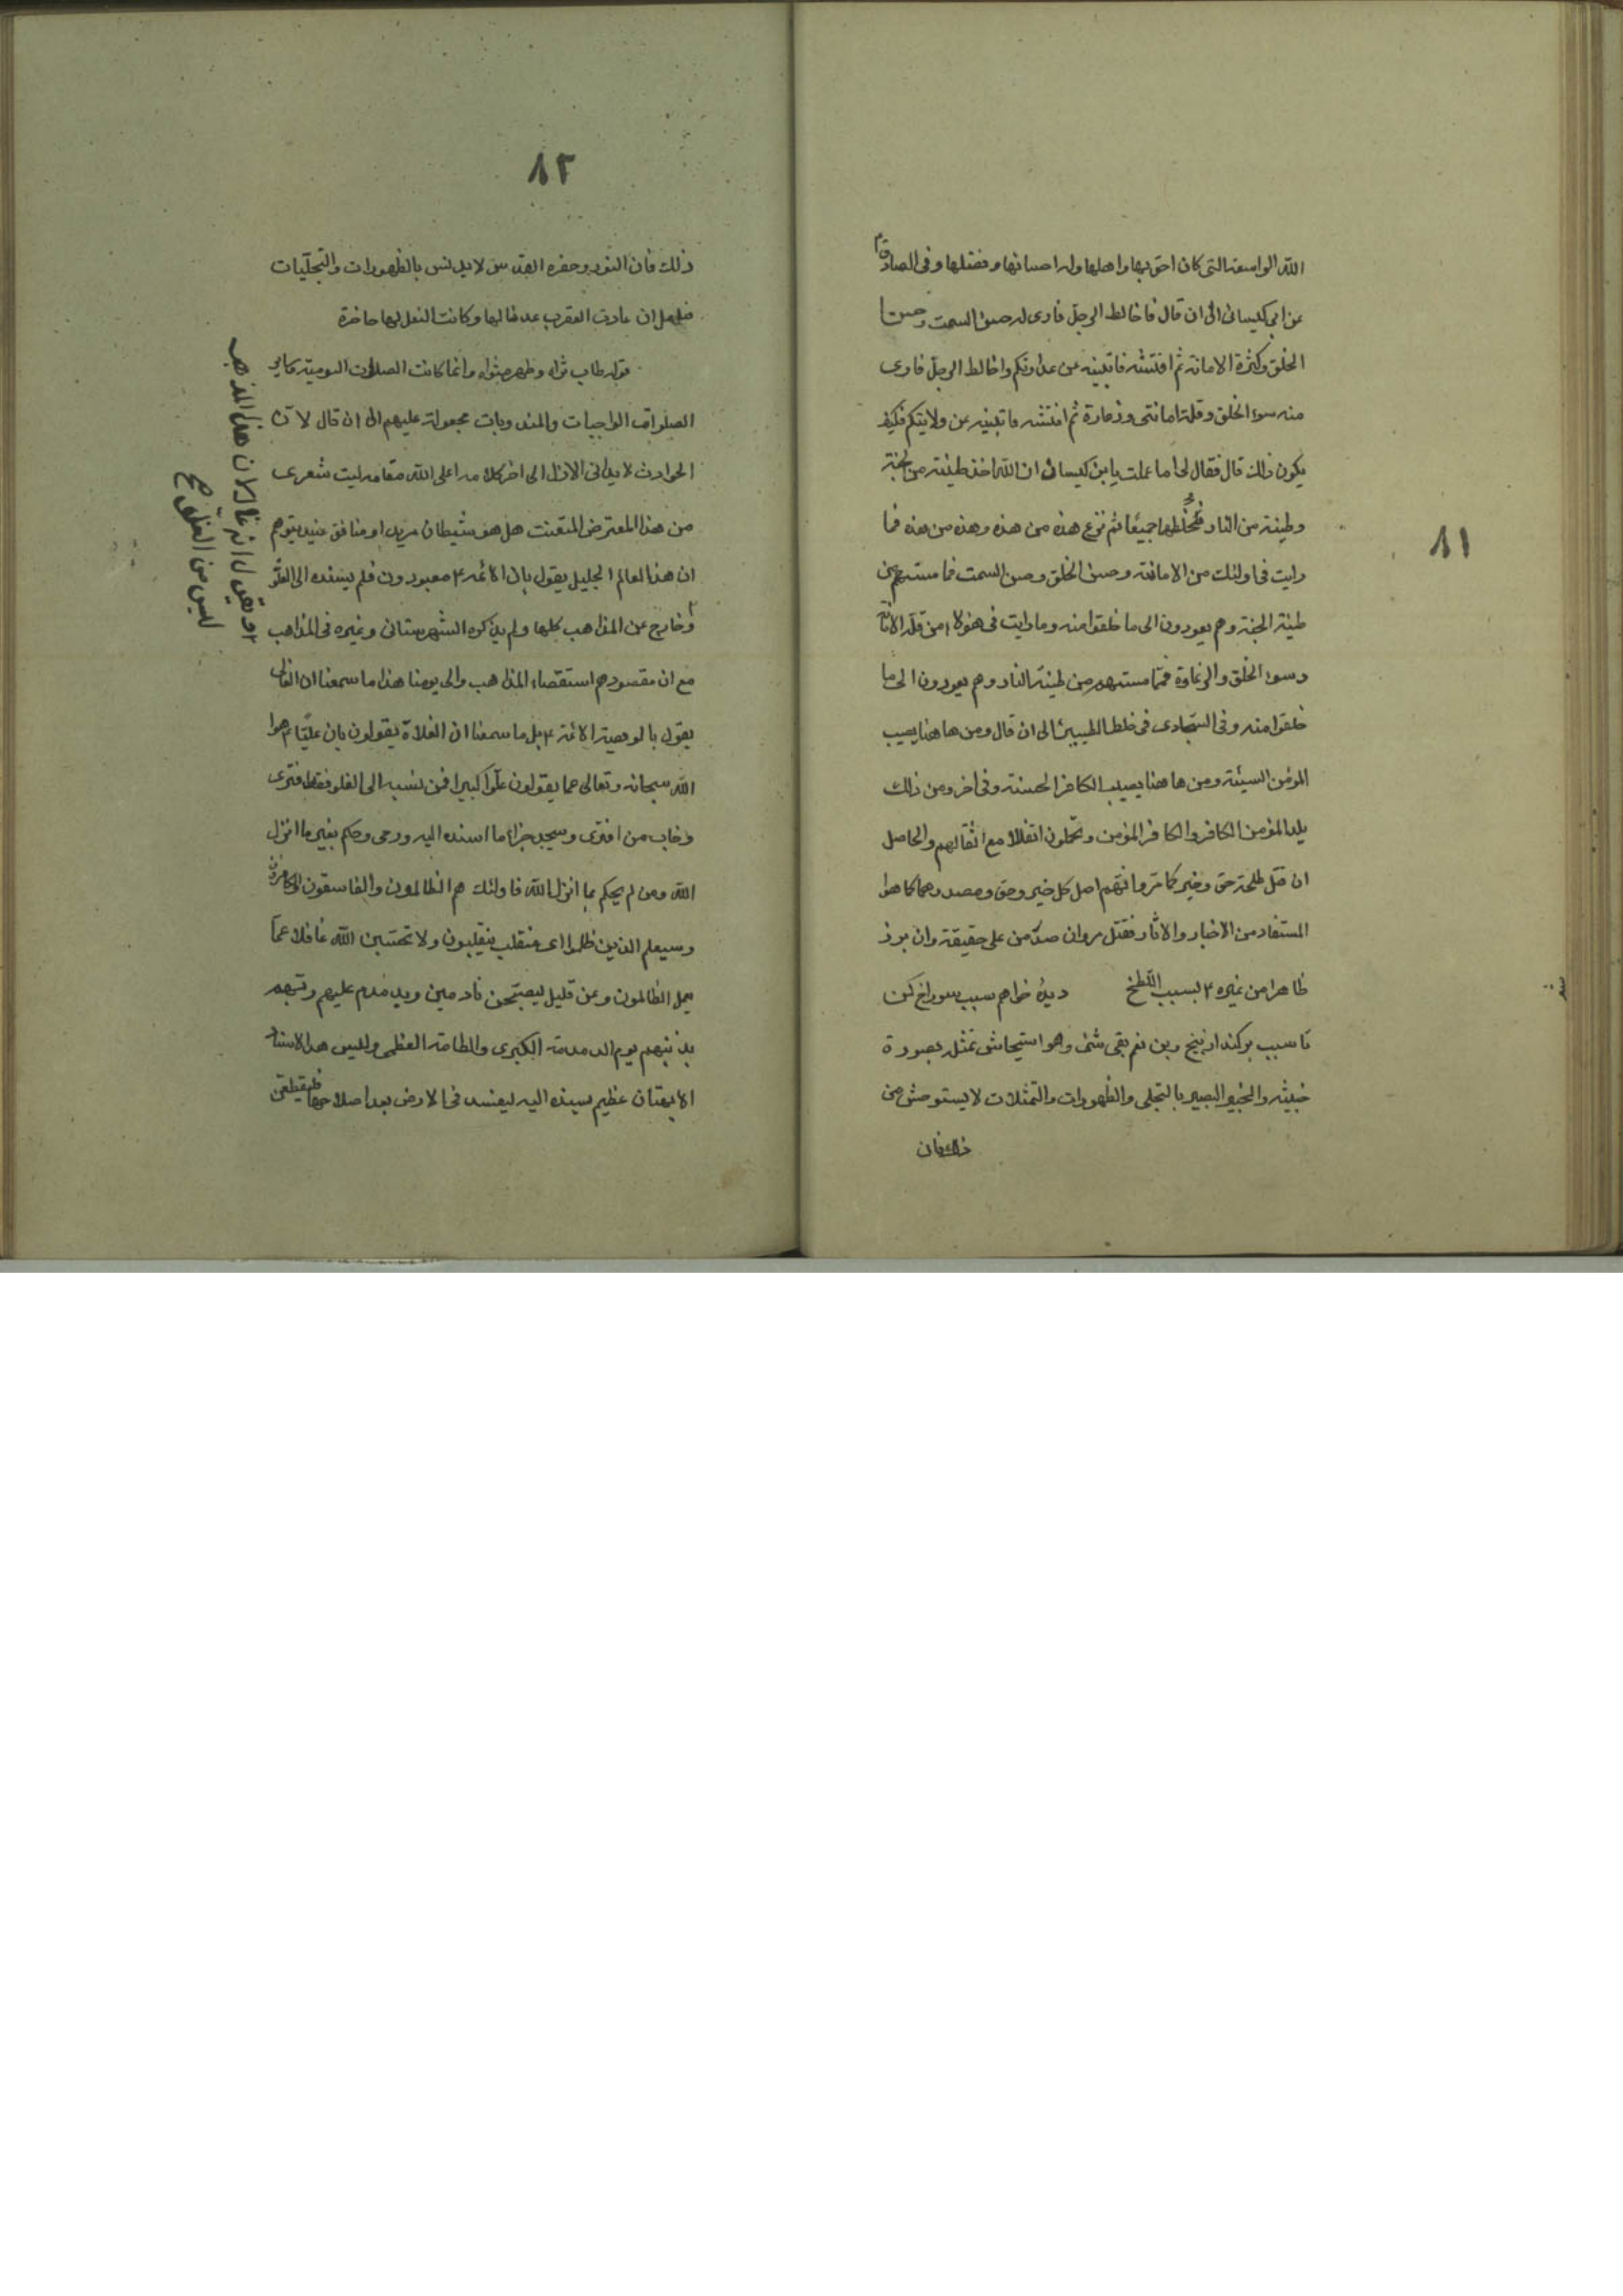 ٨١
الله الواسعة التى كان احق بها واهلها وله احسانها وفضلها وفى الصادق
عن ابى كيسان الى ان قال فاخالط الرجل فارى له حسن السمت وحسن
الخلق وكثرة الامانة ثم افتشه فاتبينه عن عداوتكم واخالط الرجل فارى
منه سوء الخلق وقلة امانتى وزعارة ثم افتشه فاتبينه عن ولايتكم فكيف
يكون ذلك قال فقال لى اما علمت يا بن كيسان ان الله اخذ طينة من الجنة
وطينة من النار فخلطهما جميعًا ثم نزع هذه من هذه وهذه من هذه فما
رايت فى اولئك من الامانة وحسن الخلق وحسن السمت فما مستهم من
طينة الجنة وهم يعودون الى ما خلقوا منه وما رايت فى هؤلاء من قلة الامانة
وسوء الخلق والزعارة فما مستهم من طينة النار وهم يعودون الى ما
خلقوا منه وفى السجادى فى خلط الطينتين الى ان قال ومن ها هنا يصيب
المؤمن السيئة ومن ها هنا يصيب الكافر الحسنة وفى اخر ومن ذلك
يلد المؤمن الكافر والكافر المؤمن وتحملون اثقالا مع اثقالهم والحاصل
ان قتل طلحة حق وخير كما مر وانهم اصل كل خير وحق ومصدرهما كما هو
المستفاد من الاخبار والاثار فقتل مروان صدر من على حقيقة وان برز
ظاهرا من غيره ع بسبب اللطخ ديدۀ خواهم سبب سوراخ كن
تا سبب بركند از بيخ وبن نعم بقى شئ وهو استيحاش تمثله بصورة
خبيثه والخبير البصير بالتجلى والظهورات والتمثلات لا يستوحش من
ذلك فان
٨٢
ذلك فان النور وحضرة القدس لا يدنس بالظهورات والتجليات
ان عادت العقرب عدنا لها وكانت النعل لها حاضرة
قوله طاب ثراه وطهر مثواه وانما كانت الصلوات اليومية كساير
الصلوات الواجبات والمندوبات مجعولة عليهم الى ان قال لان
الحوادث لا يدانى الازل الى اخر كلامه اعلى الله مقامه ليت شعرى
من هذا المعترض المتعنت هل هو شيطان مريد او منافق عنيد يتوهم
ان هذا العالم الجليل يقول بان الائمه ع معبودون فلم يسنده الى الغلو
وخارج عن المذاهب كلها ولم يذكره الشهرستانى وغيره فى المذاهب
مع ان مقصودهم استقصاء المذاهب والى يومنا هذا ما سمعنا ان الغالى
يقول بالوهية الائمة ع بل ما سمعنا ان الغلاة يقولون بان عليّا ع هو
الله سبحانه وتعالى عما يقولون علوّا كبيرا فمن نسبه الى الغلو فقد افترى
وخاب من افترى وسيجد جزاء ما اسنده اليه ورمى وحكم بغير ما انزل
الله ومن لم يحكم بما انزل الله فاولئك هم الظالمون والفاسقون والكافرون
وسيعلم الذين ظلموا اى منقلب ينقلبون ولا تحسبن الله غافلا عما
يعمل الظالمون وعن قليل ليصبحن نادمين ويدمدم عليهم ربهم
بذنبهم يوم الدمدمة الكبرى والطامة العظمى وليس هذا الاسناد
الا بهتان عظيم يسنده اليه ليفسد فى الارض بعد اصلاحها
يقول انه غال لان هذا المذهب
ليس من الغلو صح